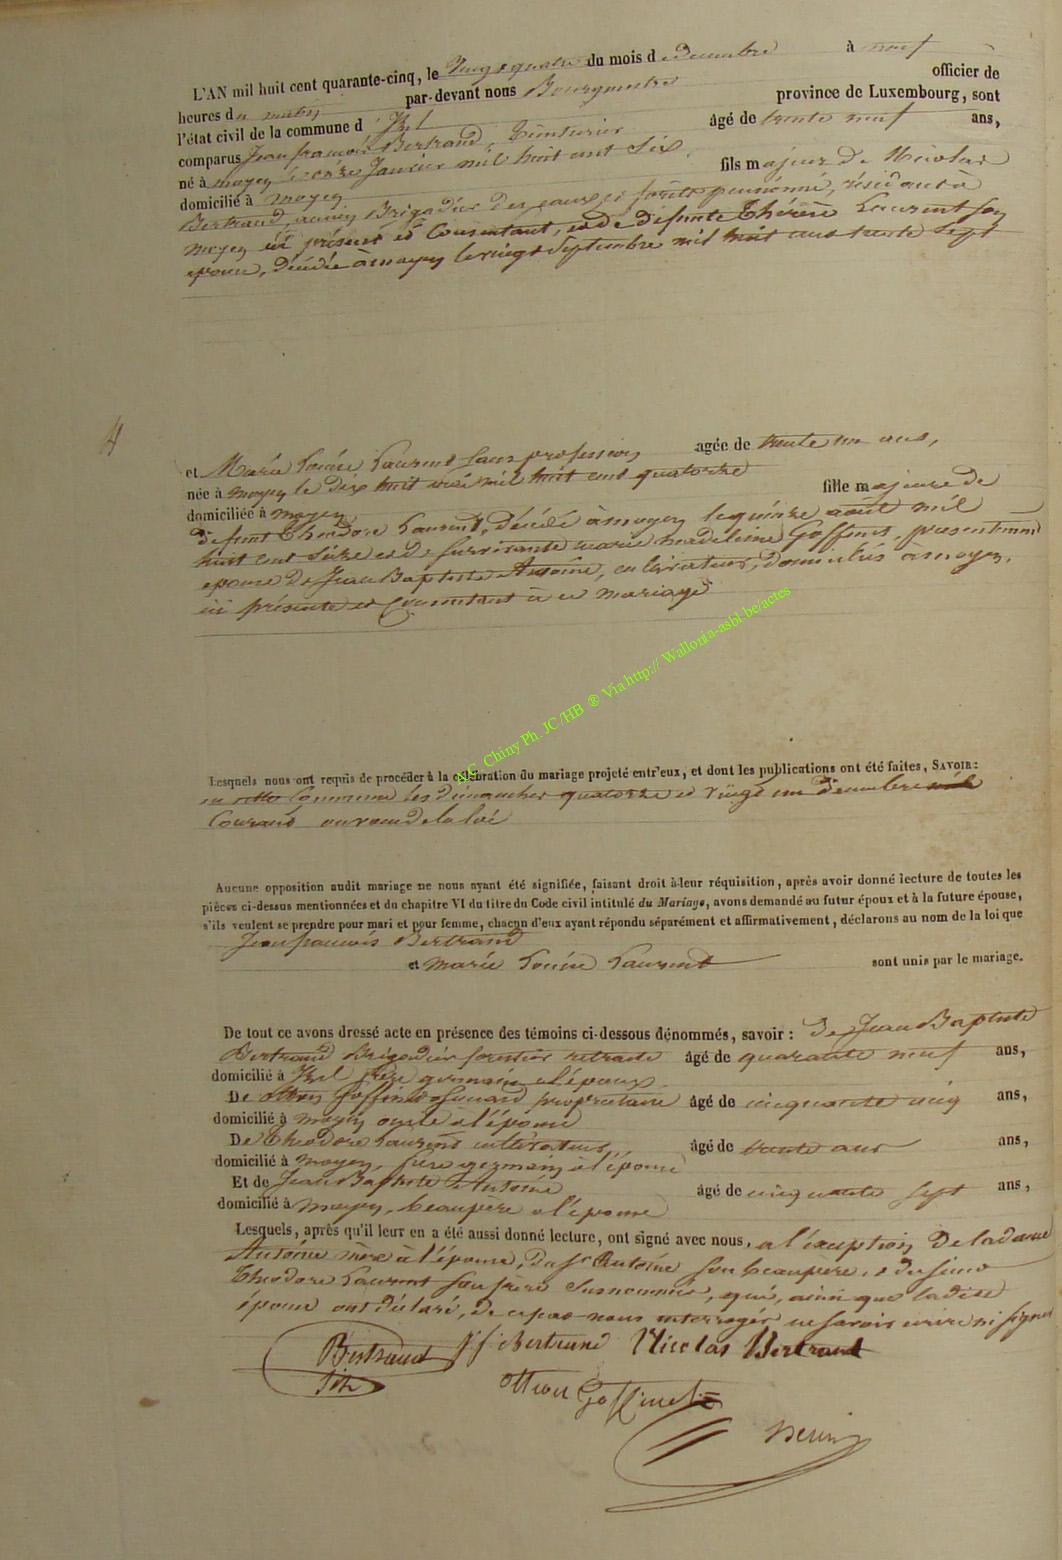 L'AN mil huit cent quarante-cinq, le Vingt quatre du mois de decembre à neuf
heures du matin par-devant nous Bourgmestre officier de
l'état civil de la commune d'Izel province de Luxembourg, sont
comparus Jean françois Bertrand, âgé de trente neuf ans,
né à moyen le onze Janvier mil huit cent six
domicilié à moyen fils majeur de Nicolas
Bertrand, ancien Brigadier des eaux et forêts pensionné, résidant à
moyen ici présent et Consentant, et de défunte Thérèse Laurent son
epouse, décédée à moyen le vingt Septembre mil huit cent trente Sept
4
et Marie Louise Laurent Sans profession agée de trente un ans,
née à moyen le dix huit mil huit cent quatorze
domiciliée à moyen fille majeure de
defunt Théodore Laurent, décédé à moyen le quinze août mil
huit cent Seize et de Survivante marie madeleine Goffinet, presentement
epouse de Jean Baptiste Antoine, cultivateurs, domiciliés a moyen,
ici présente et Consentant à ce mariage
A.G. Chiny Ph. JC /HB ® Via http:// Wallonia-asbl.be/actes
Lesquels nous ont requis de procéder à la célébration du mariage projeté entr'eux, et dont les publications ont été faites, SAVOIR:
en cette Commune les dimanches quatorze et vingt un decembre
Courant au vœu de la loi
Aucune opposition audit mariage ne nous ayant été signifiée, faisant droit à leur réquisition, après avoir donné lecture de toutes les
pièces ci-dessus mentionnées et du chapitre VI du titre du Code civil intitulé du Mariage, avons demandé au futur époux et à la future épouse,
s'ils veulent se prendre pour mari et pour femme, chacun d'eux ayant répondu séparément et affirmativement, déclarons au nom de la loi que
Jean françois Bertrand
et marie Louise Laurent sont unis par le mariage.
De tout ce avons dressé acte en présence des témoins ci-dessous dénommés, savoir : de Jean Baptiste
Bertrand Brigadier forestier retraité âgé de quarante neuf ans,
domicilié à Izel frère germain a l'époux
De Goffinet propriétaire âgé de cinquante cinq ans,
domicilié à moyen oncle à l'épouse
De Théodore Laurent cultivateur, âgé de trente ans,
domicilié à moyen, frère germain à l'épouse
Et de Jean Baptiste Antoine âgé de cinquante sept ans,
domicilié à moyen, beaupère a l'épouse
Lesquels, après qu'il leur en a été aussi donné lecture, ont signé avec nous, a l'exception de la dame
Antoine mère à l'épouse, du Sr Antoine Son beaupère, et du Sieur
Théodore Laurent Son frère Susnommés, qui, ainsi que ladite
épouse ont déclaré, de ce par nous interrogés ne Savoir écrire ni Signer
Bertrand J f Bertrand Nicolas Bertrand
fils Goffinet